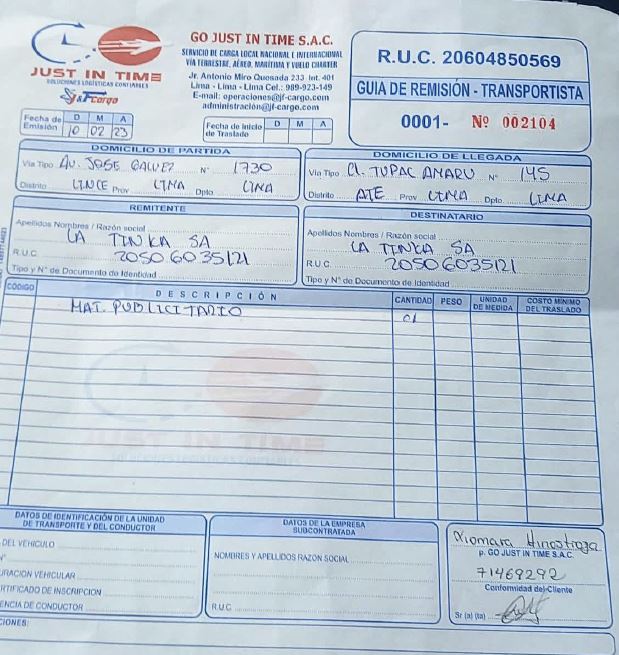 JUST IN TIME
SOLUCIONES LOGÍSTICAS CONFIABLES
J&F Cargo
GO JUST IN TIME S.A.C.
SERVICIO DE CARGA LOCAL NACIONAL E INTERNACIONAL
VÍA TERRESTRE, AÉREO, MARÍTIMA Y VUELO CHARTER
Jr. Antonio Miro Quesada 233 Int. 401
Lima - Lima - Lima Cel.: 989-923-149
E-mail: operaciones@jf-cargo.com
administración@jf-cargo.com
R.U.C. 20604850569
GUIA DE REMISIÓN - TRANSPORTISTA
0001- Nº 002104
Fecha de Emisión D M A
10 02 23
Fecha de Inicio de Traslado D M A
DOMICILIO DE PARTIDA
Vía Tipo AV. JOSE GALVEZ N° 1730
Distrito LINCE Prov LIMA Dpto. LIMA
DOMICILIO DE LLEGADA
Vía Tipo CL. TUPAC AMARU N° 145
Distrito ATE Prov LIMA Dpto. LIMA
REMITENTE
Apellidos Nombres / Razón social
LA TINKA SA
R.U.C. 20506035121
Tipo y N° de Documento de Identidad
DESTINATARIO
Apellidos Nombres / Razón social
LA TINKA SA
R.U.C. 20506035121
Tipo y N° de Documento de Identidad
CÓDIGO DESCRIPCIÓN CANTIDAD PESO UNIDAD DE MEDIDA COSTO MINIMO DEL TRASLADO
MAT. PUBLICITARIO 01
JUST IN TIME
SOLUCIONES LOGÍSTICAS CONFIABLES
DATOS DE IDENTIFICACIÓN DE LA UNIDAD
DE TRANSPORTE Y DEL CONDUCTOR
DEL VEHICULO
N°
URACION VEHICULAR
RTIFICADO DE INSCRIPCION
ENCIA DE CONDUCTOR
DATOS DE LA EMPRESA
SUBCONTRATADA
NOMBRES Y APELLIDOS RAZON SOCIAL
R.U.C
Xiomara Hinostroza
p. GO JUST IN TIME S.A.C.
71469292
Conformidad del Cliente
Sr (a) (ta)
CIONES: